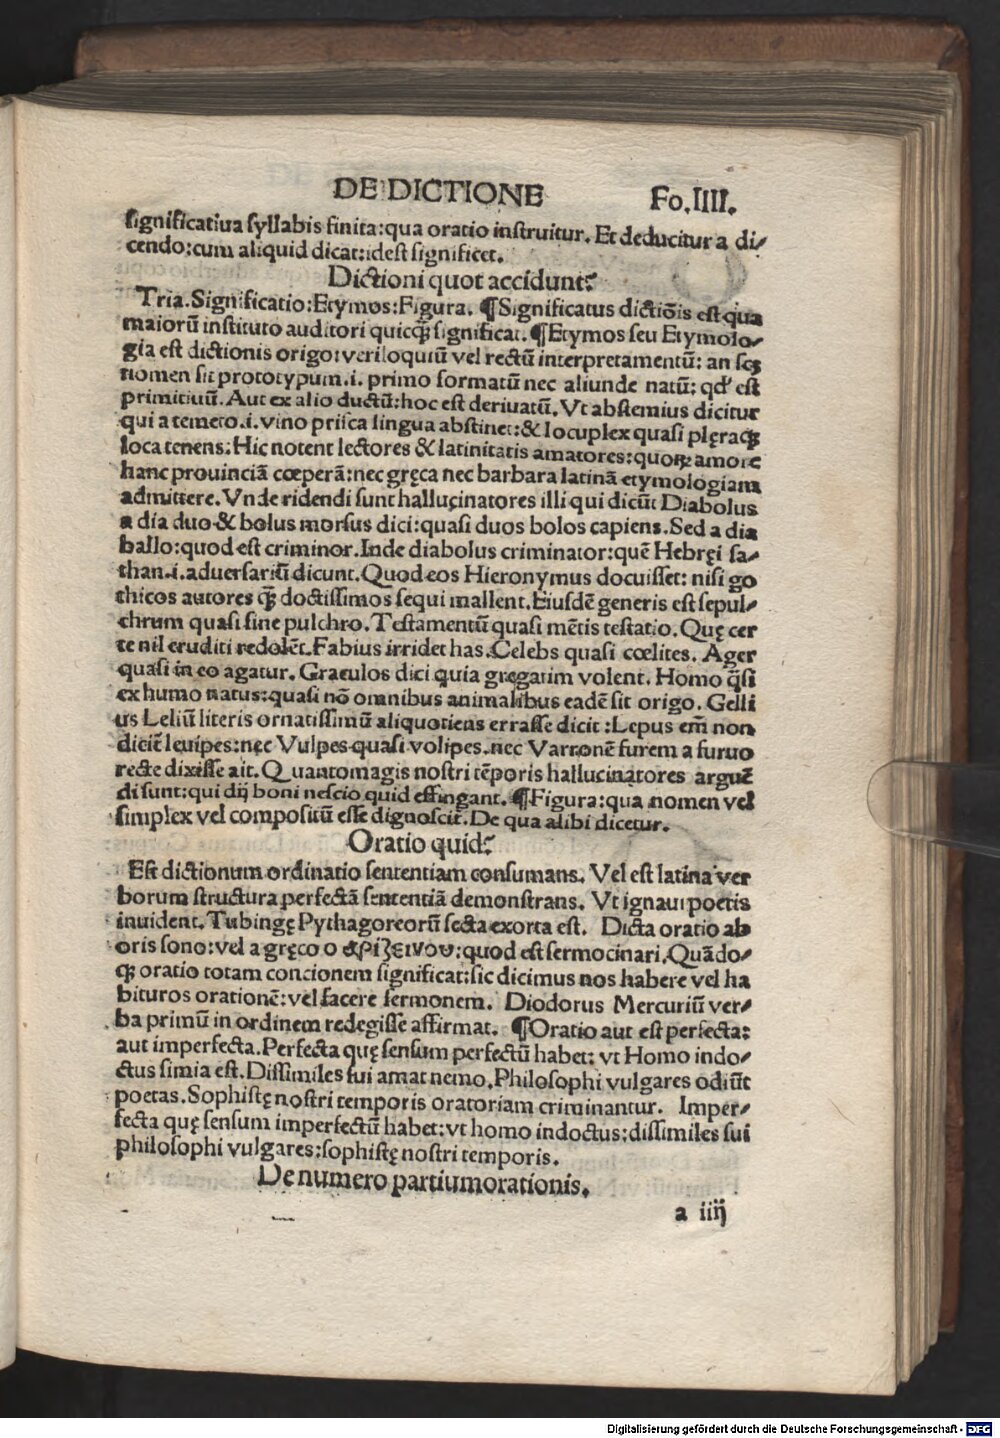 DE DICTIONE Fo.IIII.
significatiua syllabis finita:qua oratio instruitur. Et deducitur a di⸗
cendo:cum aliquid dicat:idest significet.
Dictioni quot accidunt?
Tria. Significatio: Etymos: Figura. ¶Significatus dictiōis est qua
maiorū instituto auditori quicꝙ significat. ¶Etymos seu Etymolo⸗
gia est dictionis origo: veriloquiū vel rectū interpretamentū: an scꝫ
nomen sit prototypum.i. primo formatū nec aliunde natū: qd' est
primitiuū. Aut ex alio ductū:hoc est deriuatū. Vt abstemius dicitur
qui a temeto.i. vino prisca lingua abstinet:& locuplex quasi plęraꝙ
loca tenens: Hic notent lectores & latinitatis amatores: quoꝝ amore
hanc prouinciā cœperā:nec gręca nec barbara latinā etymologiam
admittere. Vnde ridendi sunt hallucinatores illi qui dicūt Diabolus
a día duo & bolus morsus dici:quasi duos bolos capiens. Sed a dia
ballo:quod est criminor. Inde diabolus criminator:quē Hebręi sa⸗
than.i. aduersariū dicunt. Quod eos Hieronymus docuisset: nisi go
thicos autores ꝙ̃ doctissimos sequi mallent. Eiusdē generis est sepul⸗
chrum quasi sine pulchro. Testamentū quasi mētis testatio. Quę cer
te nil eruditi redolēt. Fabius irridet has. Celebs quasi cœlites. Ager
quasi in eo agatur. Graculos dici quia gregatim volent. Homo q̄si
ex humo natus:quasi nō omnibus animalibus eadē sit origo. Gelli
us Leliū literis ornatissimū aliquotiens errasse dicit: Lepus em̄ non
dicit̄ leuipes:nec Vulpes quasi volipes. nec Varronē furem a furuo
recte dixisse ait. Quantomagis nostri tēporis hallucinatores arguē
di sunt:qui dij boni nescio quid effingant. ¶Figura:qua nomen vel
simplex vel compositū esse dignoscit̄. De qua alibi dicetur.
Oratio quid?
Est dictionum ordinatio sententiam consumans. Vel est latina ver
borum structura perfectā sententiā demonstrans. Vt ignaui poetis
inuident. Tubingę Pythagoreorū secta exorta est. Dicta oratio ab
oris sono: vel a gręco ο αριζεινου:quod est sermocinari. Quādo⸗
ꝙ oratio totam concionem significat:sic dicimus nos habere vel ha
bituros orationē:vel facere sermonem. Diodorus Mercuriū ver⸗
ba primū in ordinem redegisse affirmat. ¶Oratio aut est perfecta:
aut imperfecta. Perfecta quę sensum perfectū habet: vt Homo indo⸗
ctus simia est. Dissimiles sui amat nemo. Philosophi vulgares odiūt
poetas. Sophistę nostri temporis oratoriam criminantur. Imper⸗
fecta quę sensum imperfectū habet: vt homo indoctus:dissimiles sui
philosophi vulgares:sophistę nostri temporis.
De numero partiumorationis.
a iiij
Digitalisierung gefördert durch die Deutsche Forschungsgemeinschaft - DFG